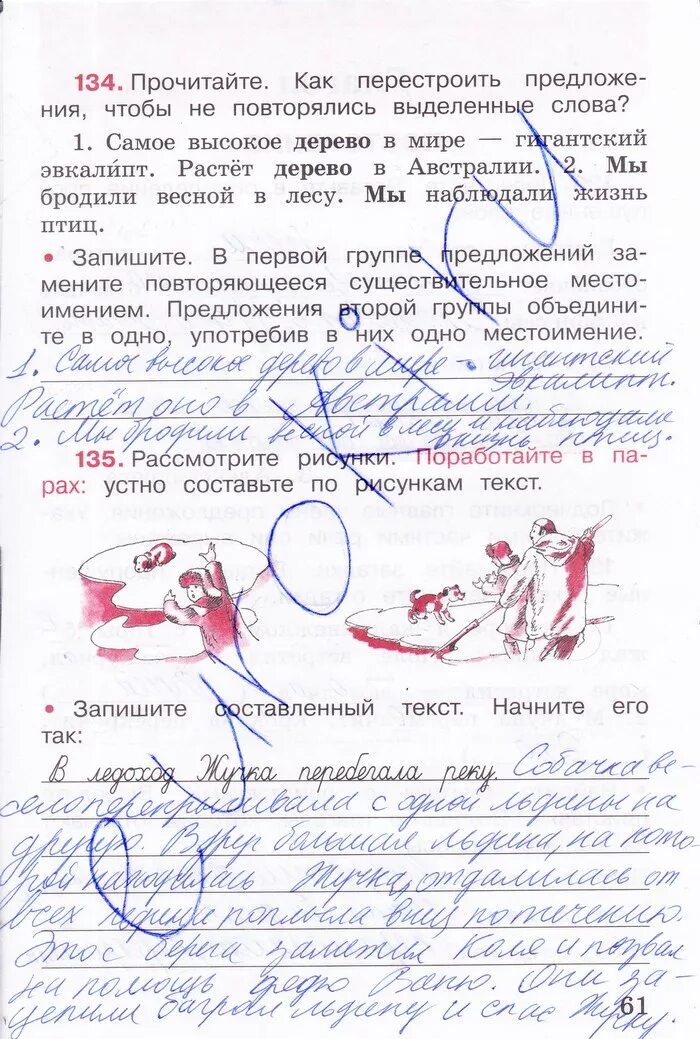 134. Прочитайте. Как перестроить предложе-
ния, чтобы не повторялись выделенные слова?
1. Самое высокое дерево в мире — гигантский
эвкалипт. Растёт дерево в Австралии. 2. Мы
бродили весной в лесу. Мы наблюдали жизнь
птиц.
• Запишите. В первой группе предложений за-
мените повторяющееся существительное место-
имением. Предложения второй группы объедини-
те в одно, употребив в них одно местоимение.
1. Самое высокое дерево в мире - гигантский
эвкалипт.
Растёт оно в Австралии.
2. Мы бродили весной в лесу и наблюдали
жизнь птиц.
135. Рассмотрите рисунки. Поработайте в па-
рах: устно составьте по рисункам текст.
• Запишите составленный текст. Начните его
так:
В ледоход Жучка перебегала реку. Собачка ве-
село перепрыгивала с одной льдины на
другую. Вдруг большая льдина, на кото-
рой находилась Жучка, отдалилась от
всех и поплыла вниз по течению.
Это с берега заметил Коля и позвал
на помощь дядю Ваню. Они за-
цепили багром льдину и спас Жучку.
61